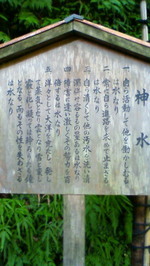 神水
一、自ら活動して他を動かしむるは水なり
二、常に自ら進路を求めて止まざるは水なり
三、自ら清くして他の汚水を洗い清濁併せ容るるの量あるは水なり
四、障害に遭い激しくその勢力を百倍するは水なり
五、洋々として大洋を充たし、発しては蒸気となり雲となり雪と変じ
となる、而もその性を失わざるは水なり